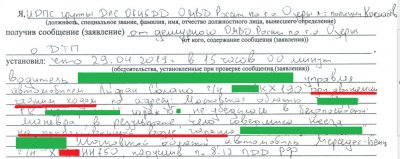 Я, ИДПС группы ДПС ОГИБДД ОМВД России по г.о. Озёры
(должность, специальное звание, фамилия, имя, отчество должностного лица, вынесшего определение)
получив сообщение (заявление) от дежурного ОМВД России по г.о. Озёры
(от кого, содержание сообщения (заявления)
о ДТП
установил: что 29.04.2019г. в 15 часов 00 минут
(обстоятельства, установленные при проверке сообщения (заявления)
водитель управляя
автомобилем Лифан Солано г/н КХ190 при движении
задним ходом по адресу Московская область
не убедился в безопасности
манёвра в результате чего совершил наезд
на
Московской области автомобиль Мерседес-Бенц
г/н Х нарушив п 8.12 ПДД РФ